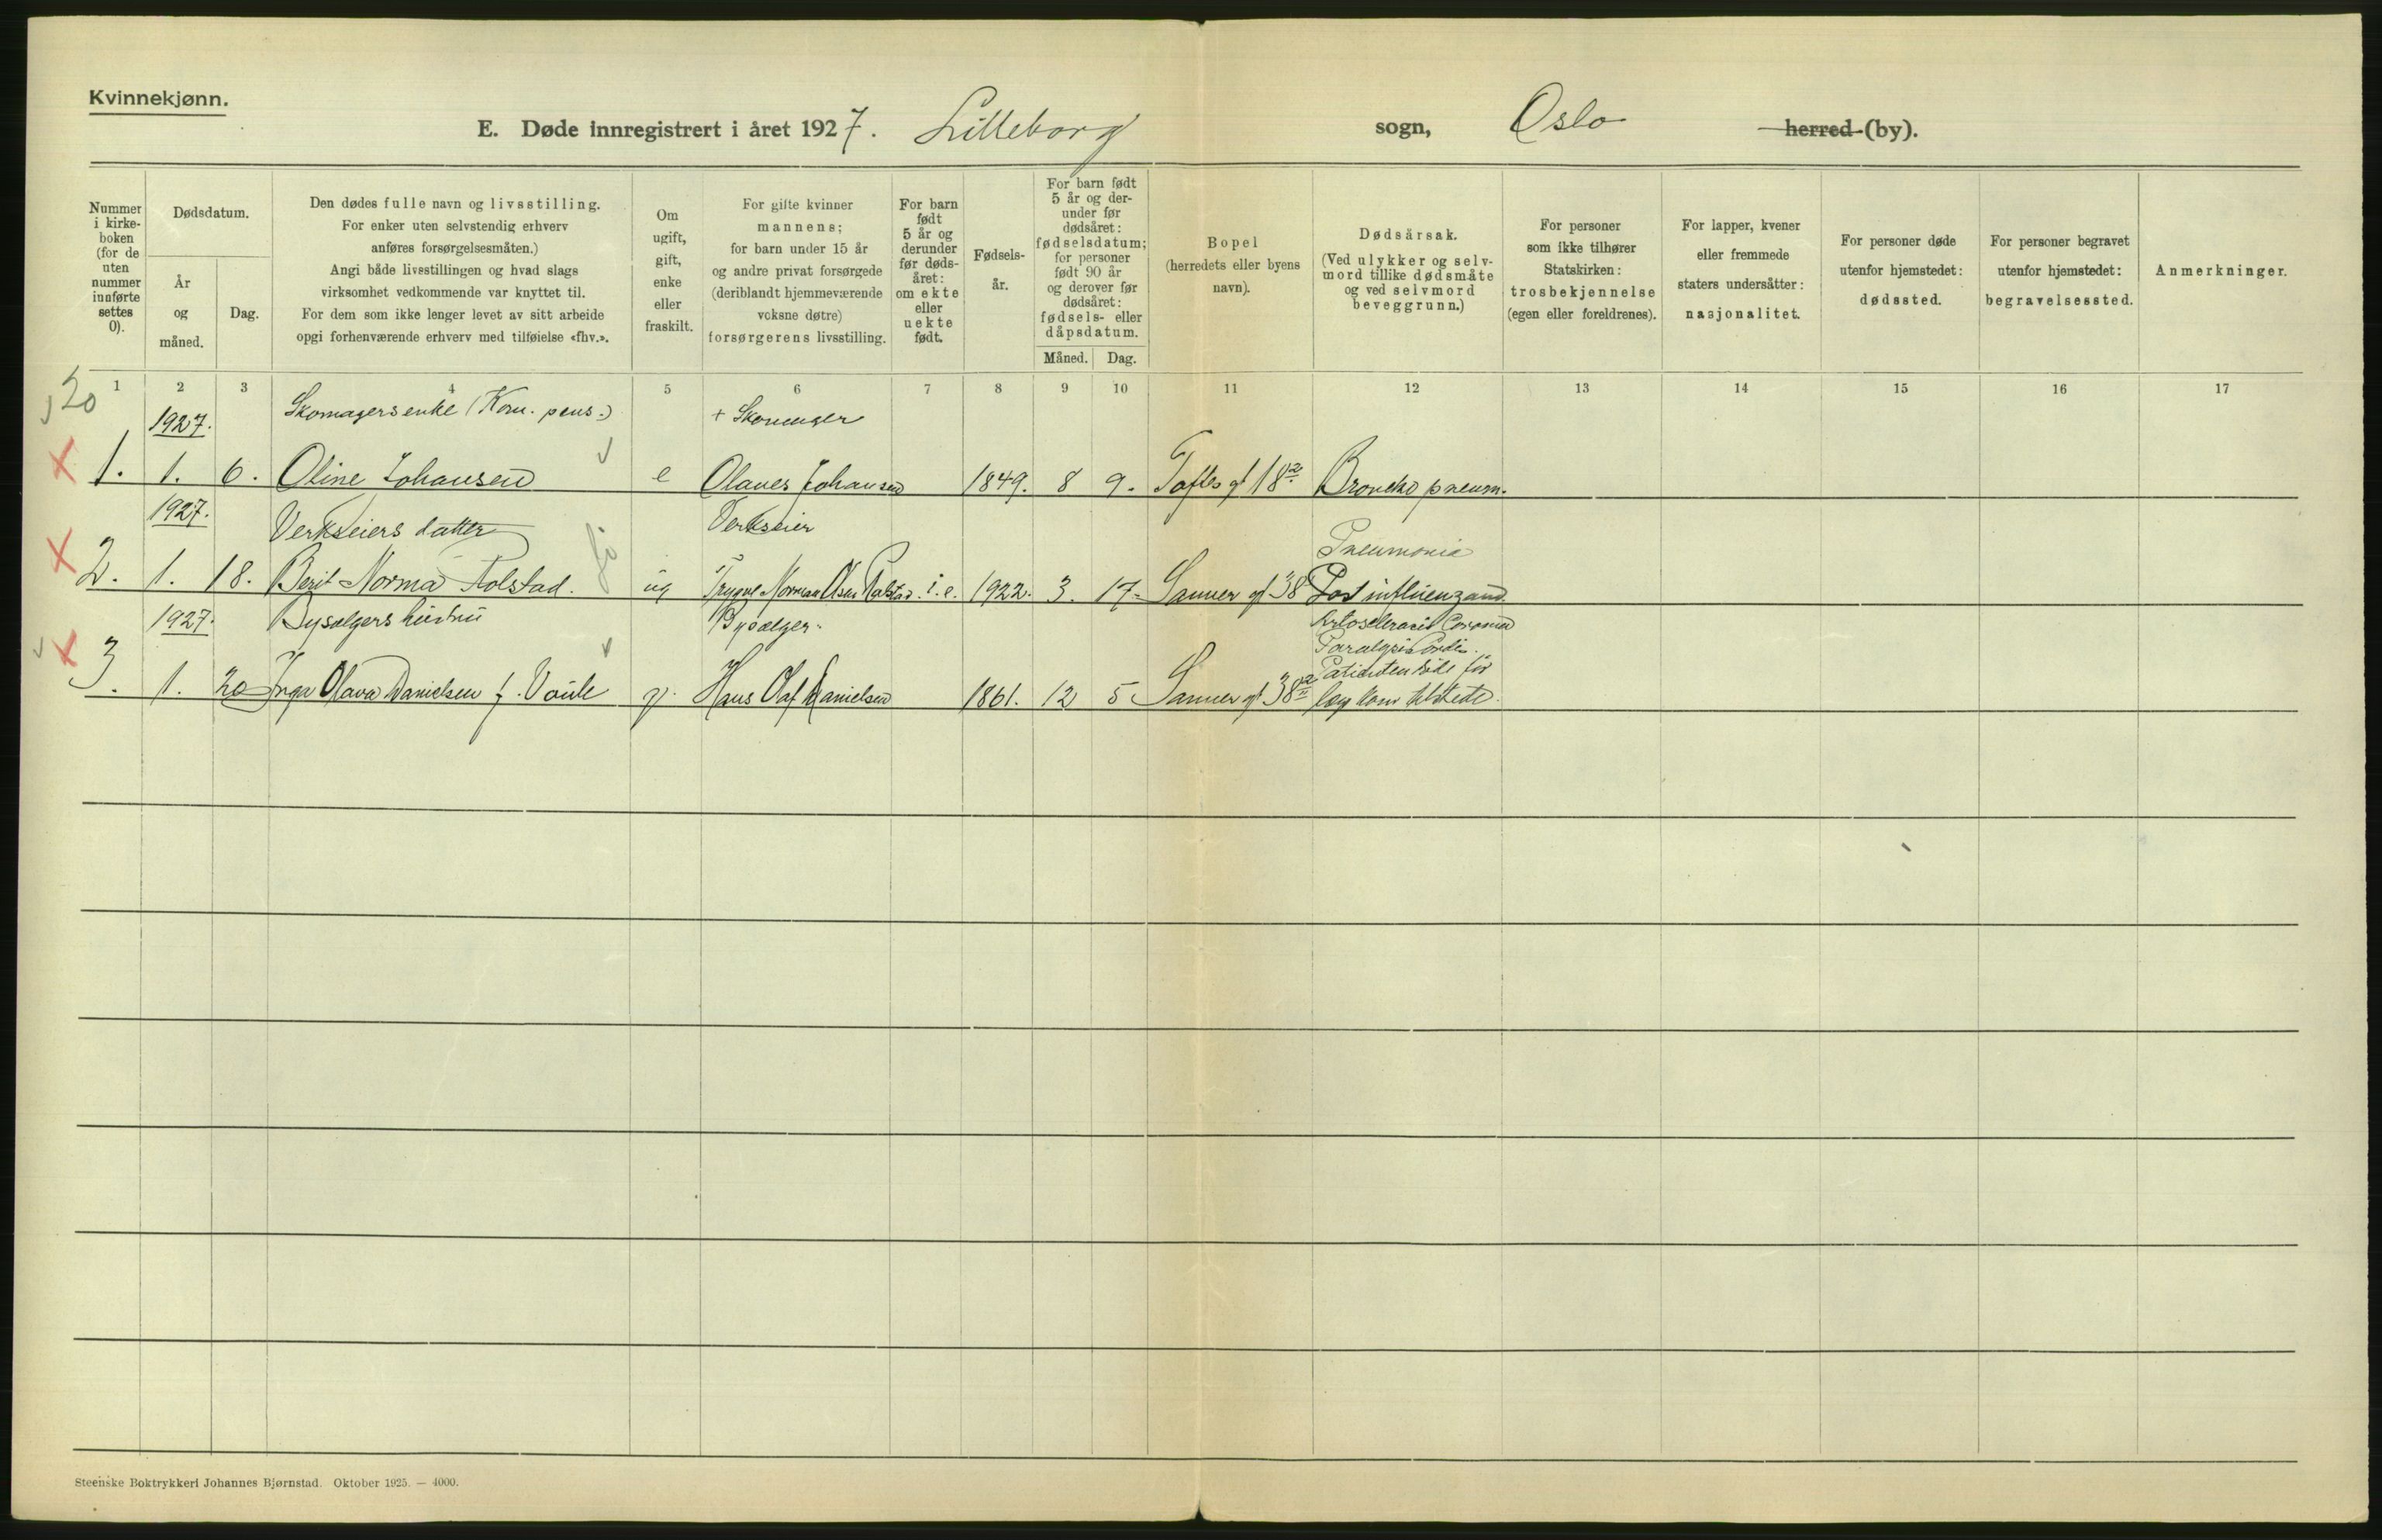 Kvinnekjønn.
E. Døde innregistrert i året 1927. Lilleborg sogn, Oslo herred (by).
Nummer i kirkeboken (for de uten nummer innførte settes 0).
Dødsdatum.
År og måned.
Dag.
Den dødes fulle navn og livsstilling.
For enker uten selvstendig erhverv
anføres forsørgelsesmåten.)
Angi både livsstillingen og hvad slags
virksomhet vedkommende var knyttet til.
For dem som ikke lenger levet av sitt arbeide
opgi forhenværende erhverv med tilføielse «fhv.».
Om
ugift,
gift,
enke
eller
fraskilt.
For gifte kvinner
mannens;
for barn under 15 år
og andre privat forsørgede
(deriblandt hjemmeværende
voksne døtre)
forsørgerens livsstilling.
For barn
født
5 år og
derunder
før døds-
året:
om ekte
eller
uekte
født.
Fødsels-
år.
For barn født
5 år og der-
under før
dødsåret:
fødselsdatum;
for personer
født 90 år
og derover før
dødsåret:
fødsels- eller
dåpsdatum.
Måned. Dag.
Bopel
(herredets eller byens
navn).
Dødsårsak.
(Ved ulykker og selv-
mord tillike dødsmåte
og ved selvmord
beveggrunn.)
For personer
som ikke tilhører
Statskirken:
trosbekjennelse
(egen eller foreldrenes).
For lapper, kvener
eller fremmede
staters undersåtter:
nasjonalitet.
For personer døde
utenfor hjemstedet:
dødssted.
For personer begravet
utenfor hjemstedet:
begravelsessted.
Anmerkninger.
1 2 3 4 5 6 7 8 9 10 11 12 13 14 15 16 17
20
1927. Skomagersenke (Kom. pens.) + Skomager
1. 1. 6. Oline Johansen e Olaves Johansen 1849. 8 9. Toftes gt 18 Broncho pneum.
1927. Verkseiers datter Verkseier Pneumonia
2. 1. 18. Berit Norma Rolstad. ug Trygve Norman Olsen Rolstad. i. e. 1922. 3. 17. Sanner gt 38 Post influenzam
1927. Bysælgers hustru Bysælger.
Paralysis Cordis.
Patienten døde før
3. 1. 20 Inga Olava Danielsen f. g. Hans Olaf Danielsen 1861. 12 5 Sanner gt 38 læg kom tilstede.
Steenske Boktrykkeri Johannes Bjørnstad. Oktober 1925. — 4000.